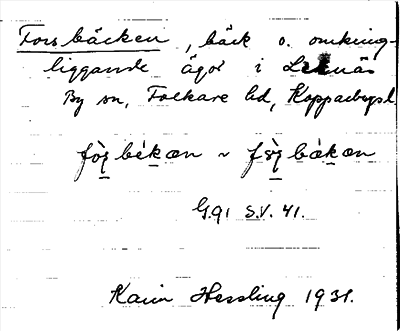 Forsbäcken, bäck o. omkring-
liggande ägor i
By sn, Folkare hd, Kopparbergs l.
bäkæn ~ bäkæn
G.91 S.V. 41.
Karin Hessling 1931.